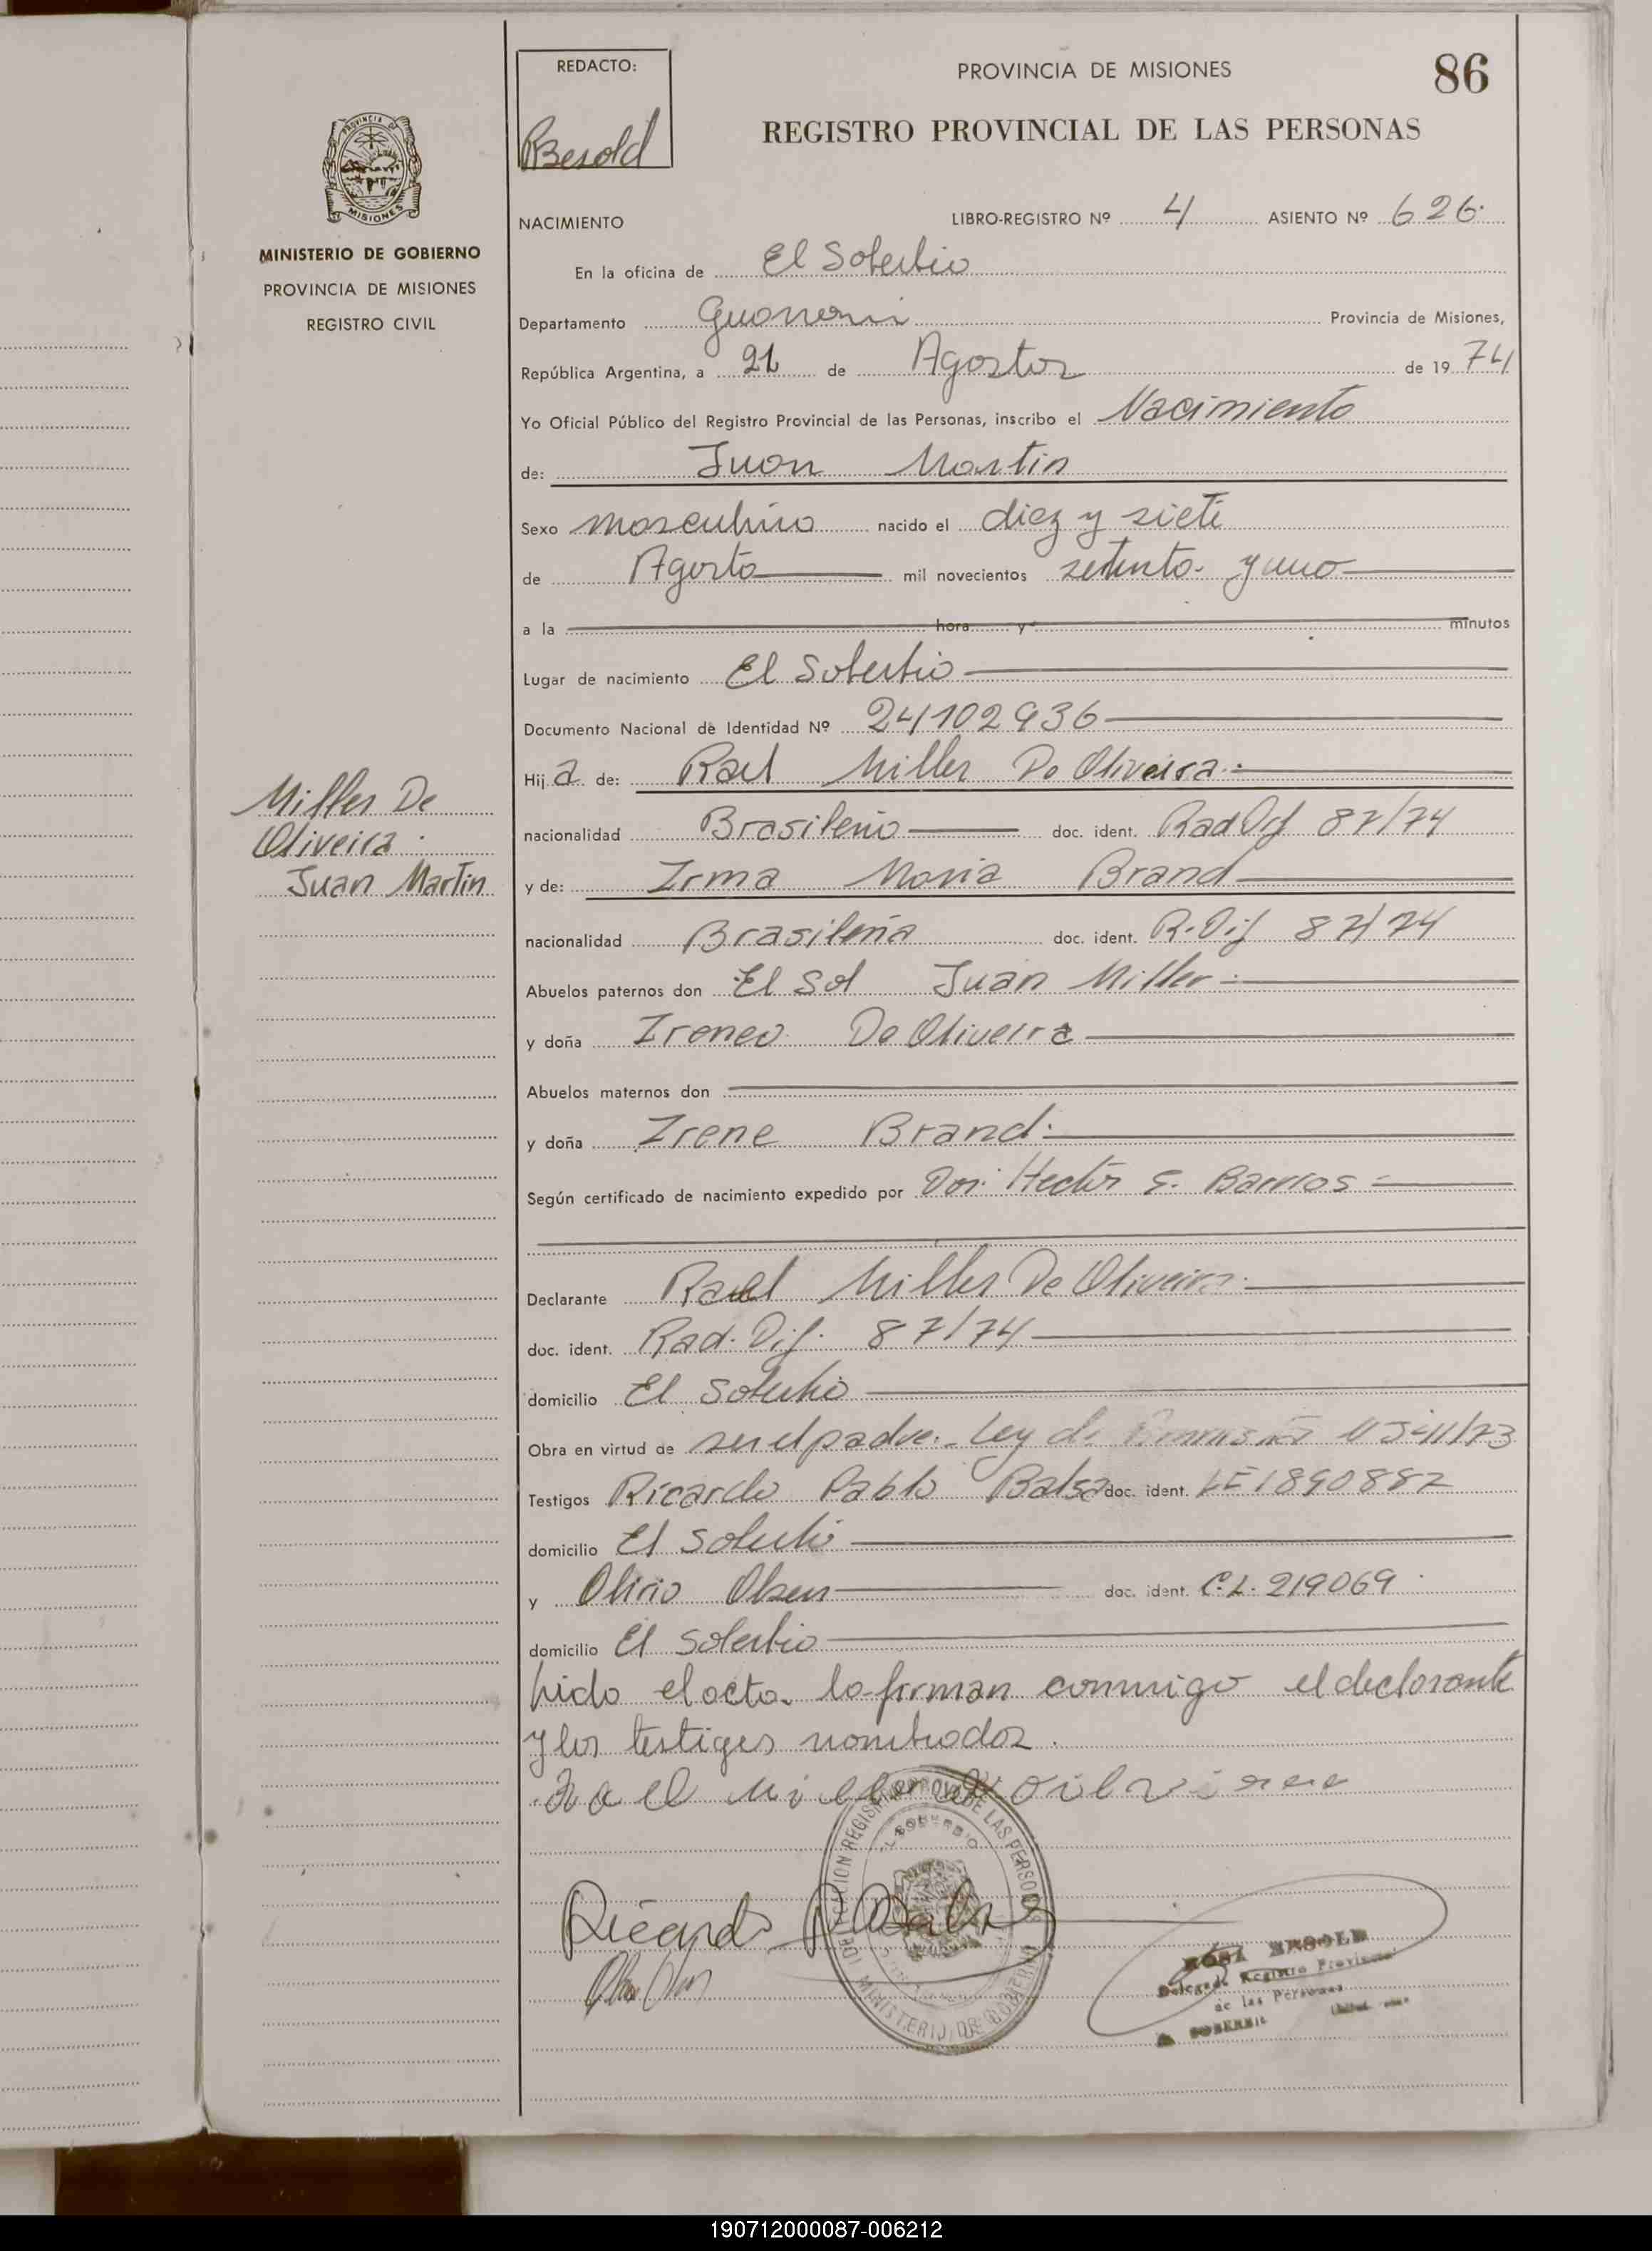 86
REDACTO:
Besold
PROVINCIA DE MISIONES
REGISTRO PROVINCIAL DE LAS PERSONAS
PROVINCIA DE
MISIONES
MINISTERIO DE GOBIERNO
PROVINCIA DE MISIONES
REGISTRO CIVIL
NACIMIENTO LIBRO-REGISTRO Nº 4 ASIENTO Nº 626
En la oficina de El Soberbio
Departamento Guarani Provincia de Misiones,
República Argentina, a 21 de Agosto de 1974
Yo Oficial Público del Registro Provincial de las Personas, inscribo el Nacimiento
de: Juan Martin
Sexo masculino nacido el diez y siete
de Agosto mil novecientos setenta y uno
a la hora y minutos
Lugar de nacimiento El Soberbio
Documento Nacional de Identidad Nº 24102936
Miller De
Oliveira
Juan Martin
Hij a de: Rael Miller De Oliveira
nacionalidad Brasileño doc. ident. Rad Dif 87/74
y de: Irma Maria Brand
nacionalidad Brasileña doc. ident. R. Dif 87/74
Abuelos paternos don El Sol Juan Miller
y doña Ireneo De Oliveira
Abuelos maternos don
y doña Irene Brand
Según certificado de nacimiento expedido por Hector S. Barrios
Declarante Rael Miller De Oliveira
doc. ident. Rad. Dif. 87/74
domicilio El Soberbio
Obra en virtud de ser el padre. Ley de
Testigos Ricardo Pablo Balsa doc. ident. LE 1890887
domicilio El Soberbio
y Olirio Olsen doc. ident. C.L. 219069
domicilio El Soberbio
Lido el acta la firman conmigo el declarante
y los testigos nombrados.
Rael Miller de
Ricardo P Balsa
ROSA BESOLD
Delegada Registro Provincial
de las Personas
SOBERBIO
190712000087-006212